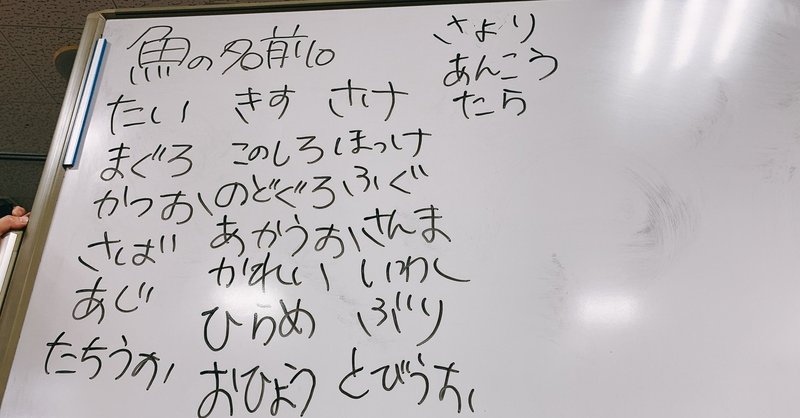 魚の名前10
たい
まぐろ
かつお
さば
あじ
たちうお
きす
このしろ
のどぐろ
あかうお
かれい
ひらめ
おひょう
さけ
ほっけ
ふぐ
さんま
いわし
ぶり
とびうお
さより
あんこう
たら